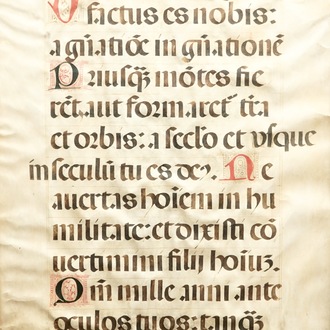 factus es nobis:
a gñatiõe in gñationẽ
Priusq̃ mõtes fie
rẽt, aut formaretʳ tr̃a
et orbis: a seclo et usque
in seculũ tu es deꝰ. Ne
avertas hoiem in hu
militatẽ: et dixisti cõ
vertimini filij hoiuz.
Qm̃ mille anni ante
oculos tuos: tanq̃